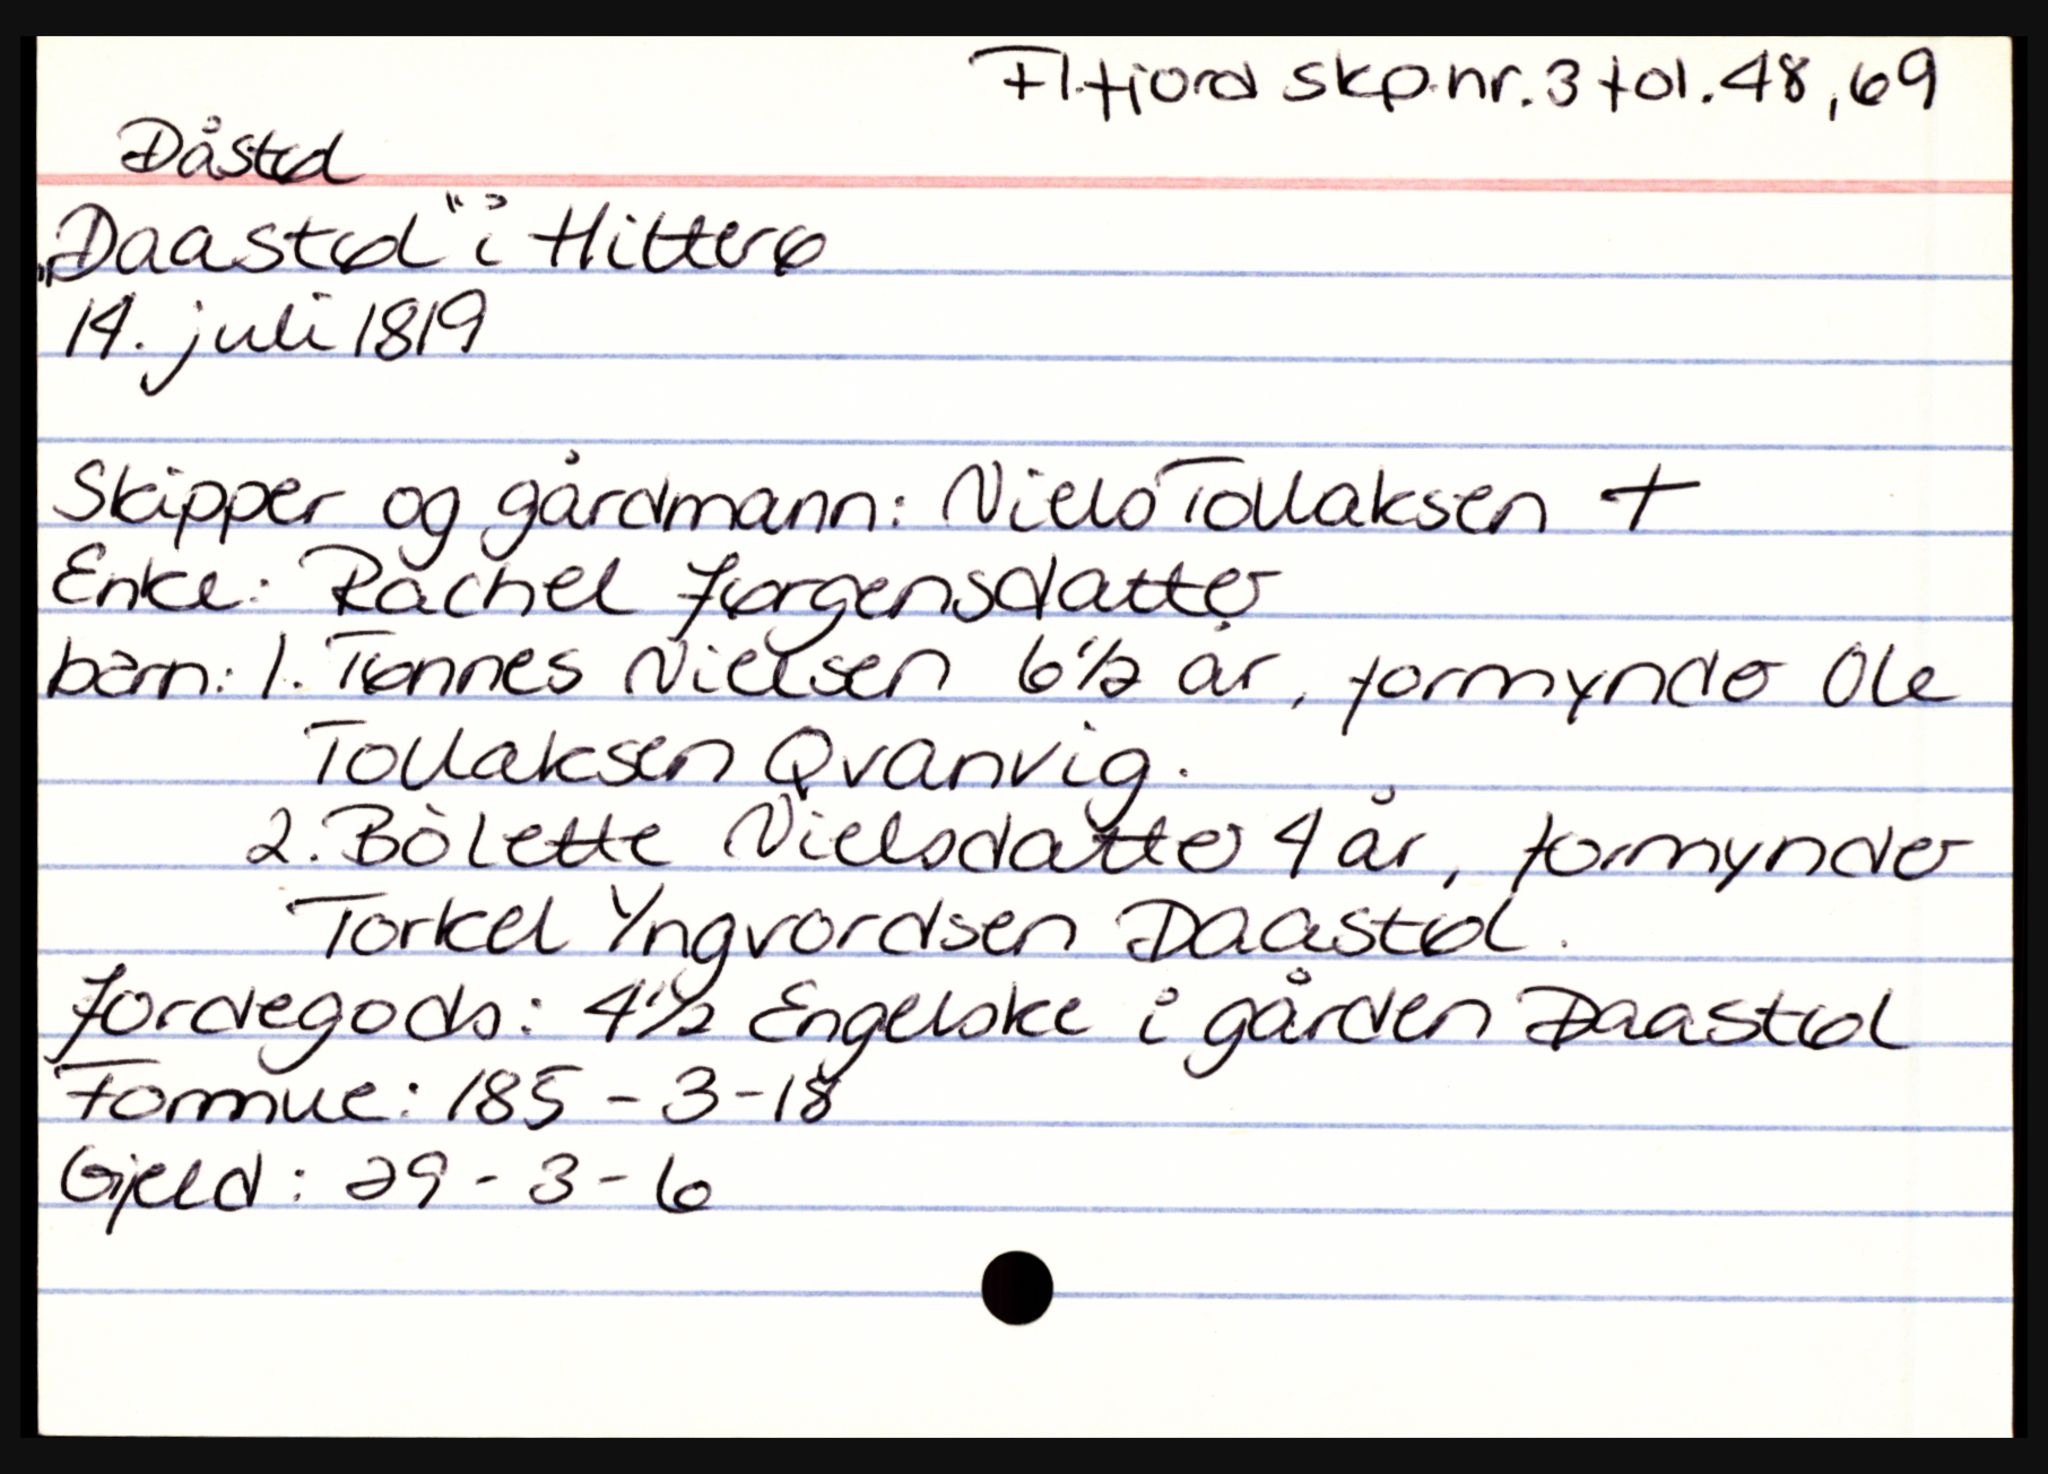 Fl.fjord skp.nr. 3 fol. 48, 69
Dåstøl
„Daastøl" i Hitterø
14. juli 1819
Skipper og gårdmann: Niels Tollaksen +
Enke: Rachel Jørgensdatter
barn: 1. Tønnes Nielsen 6 1/2 år, formynder Ole
Tollaksen Qvanvig.
2. Bolette Nielsdatter 4 år, formynder
Torkel Yngvordsen Daastøl.
Jordegods: 4 1/2 Engelske i gården Daastøl
Formue: 185 - 3 - 18
Gjeld: 29 - 3 - 6